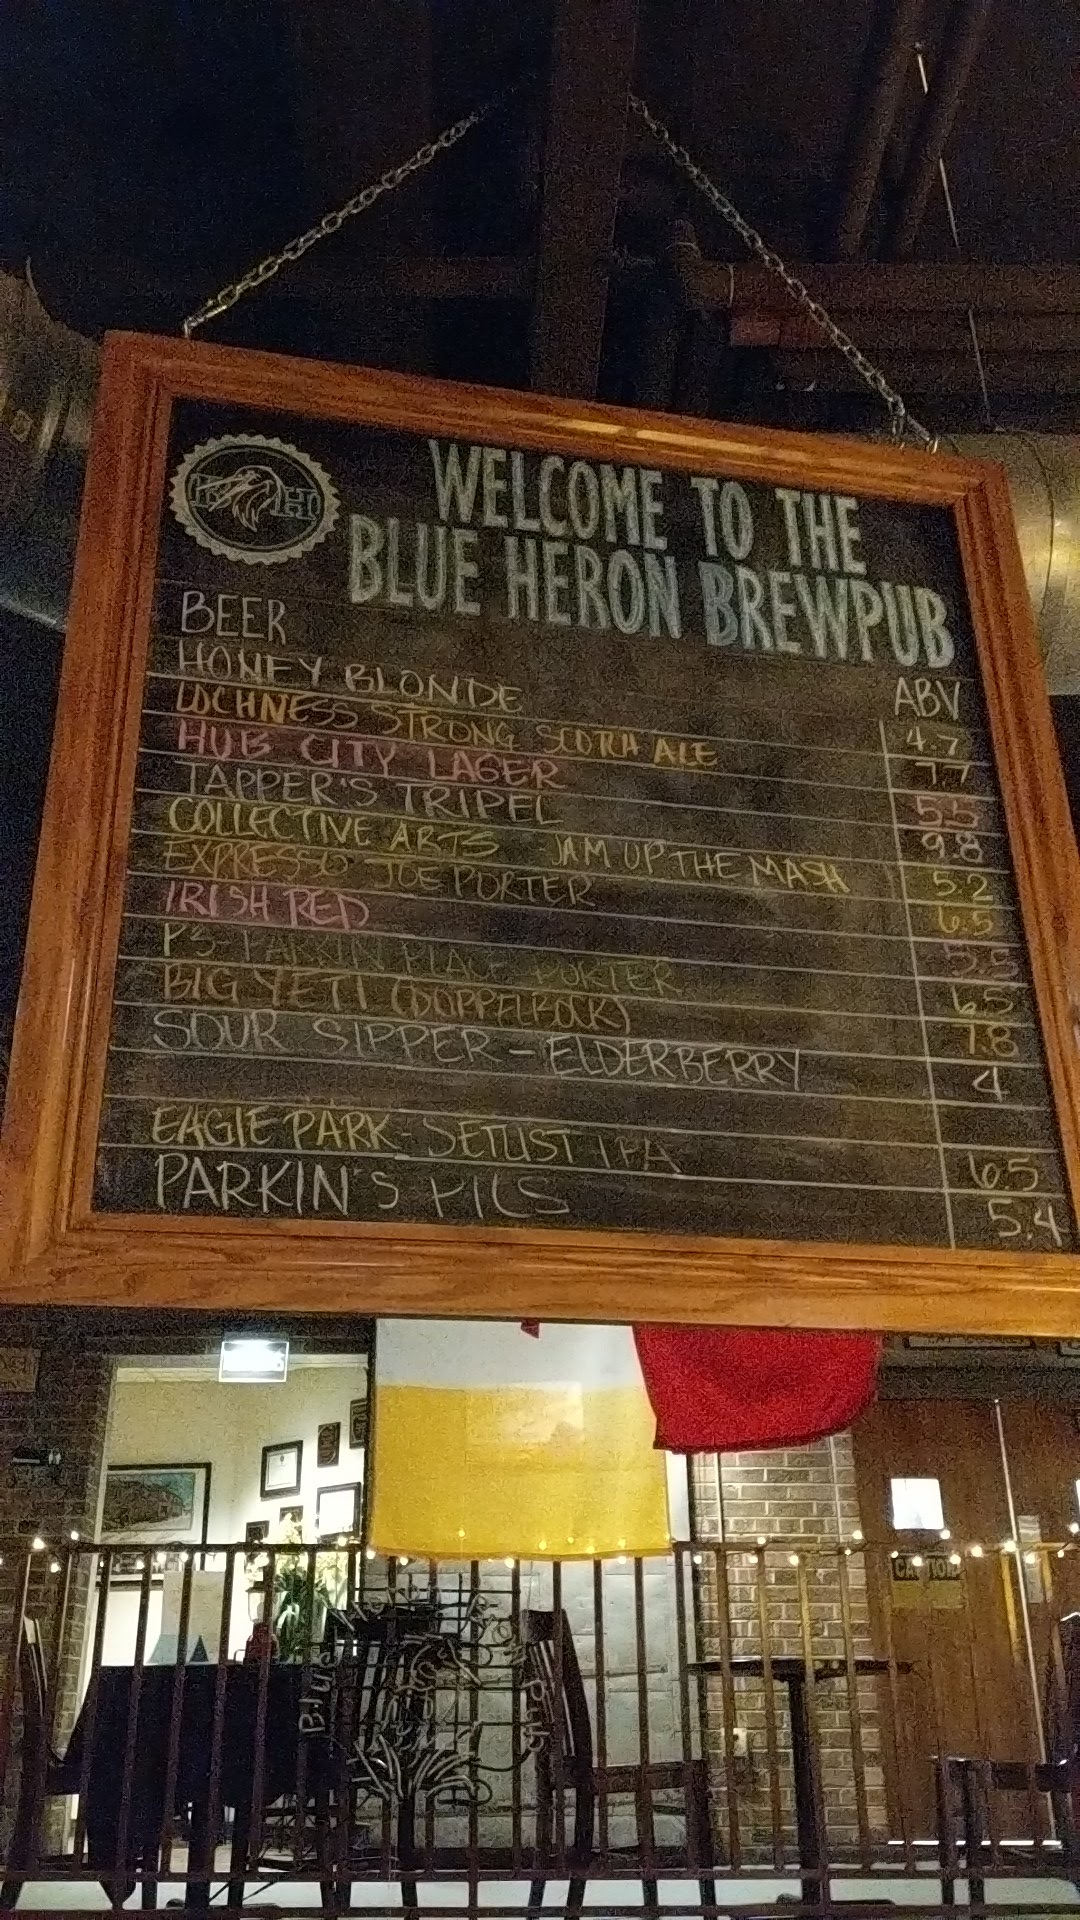 WELCOME TO THE
BLUE HERON BREWPUB
BEER ABV
HONEY BLONDE 4.7
LOCHNESS STRONG SCOTCH ALE 7.7
HUB CITY LAGER 5.5
TAPPER'S TRIPEL 9.8
COLLECTIVE ARTS - JAM UP THE MASH 5.2
EXPRESSO JOE PORTER 6.5
IRISH RED 5.5
P3 PARKIN PLACE PORTER 6.5
BIG YETI (DOPPELBOCK) 7.8
SOUR SIPPER - ELDERBERRY 4
EAGLE PARK - SETLIST IPA 6.5
PARKIN'S PILS 5.4
CAUTION
Blue